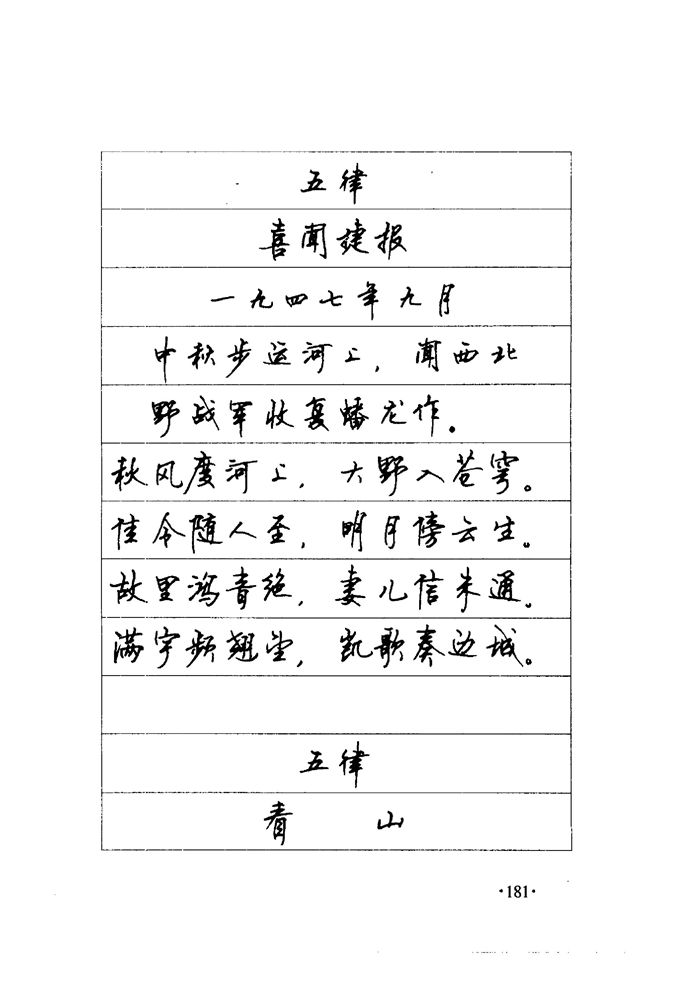 五律
喜闻捷报
一九四七年九月
中秋步运河上，闻西北
野战军收复蟠龙作。
秋风度河上，大野入苍穹。
佳令随人至，明月傍云生。
故里鸿音绝，妻儿信未通。
满宇频翘望，凯歌奏边城。
五律
看 山
·181·